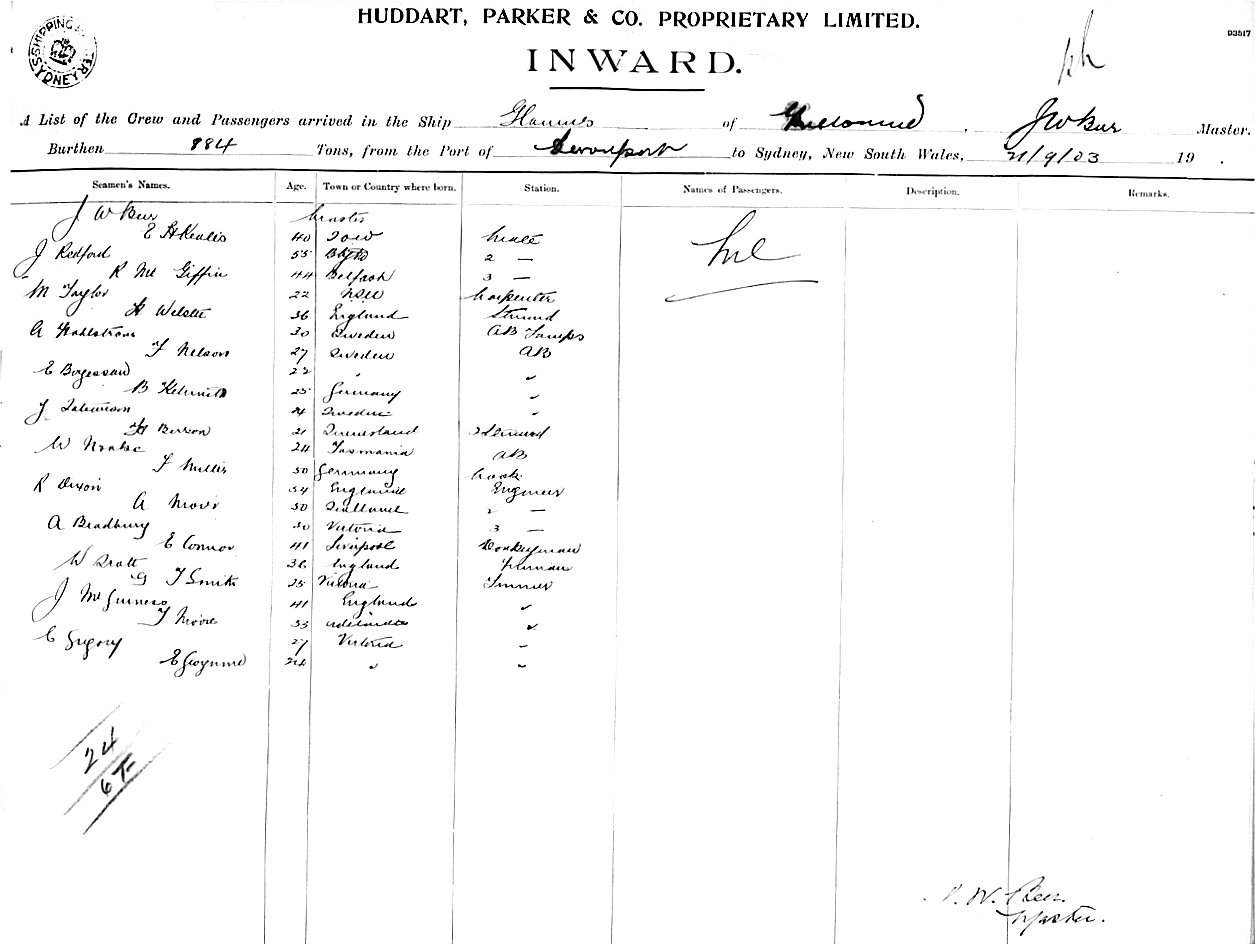 HUDDART, PARKER & CO. PROPRIETARY LIMITED.
D3517
SHIPPING SYDNEY
INWARD.
A List of the Crew and Passengers arrived in the Ship of J W Beer Master.
Burthen 884 Tons, from the Port of Devonport to Sydney, New South Wales, 21/9/03 19 .
Seamen's Names. Age. Town or Country where born. Station. Names of Passengers. Description. Remarks.
J W Beer Master
E H 40 Mate Nil
J Redford 55 2 —
R Mc Giffin 44 Belfast 3 —
M Taylor 22 NSW Carpenter
H 36 England Steward
A Wahlstrom 30 Sweden AB Lamps
F Nelson 27 Sweden AB
E Borgessan 22 " "
B 25 Germany "
J 24 Sweden "
H 21 Queensland 2 Steward
W 24 Tasmania AB
F 50 Germany Cook
R Dixon 54 England Engineer
A 30 2 —
A Bradbury 30 Victoria 3 —
E Connor 41 Liverpool Donkeyman
W 36 England Fireman
G F Smith 25 Victoria
J McGuiness 41 England "
F Moore 33 Adelaide "
E Gregory 27 Victoria "
E Gwynne 24 " "
24
J. W. Beer
Master.